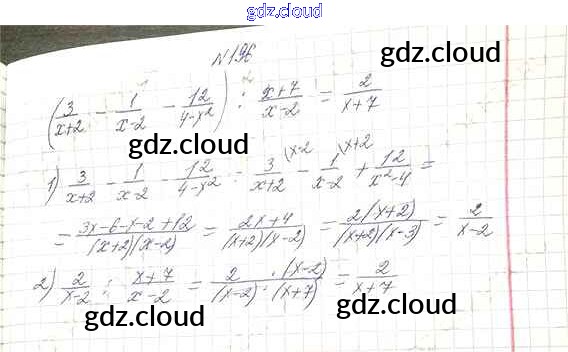 gdz.cloud
№196
(3/(x+2) - 1/(x-2) - 12/(4-x²)) : (x+7)/(x-2) = 2/(x+7)
gdz.cloud
gdz.cloud
1) 3/(x+2) - 1/(x-2) - 12/(4-x²) = 3/(x+2) \x-2 - 1/(x-2) \x+2 + 12/(x²-4) =
= (3x-6-x-2+12)/((x+2)(x-2)) = (2x+4)/((x+2)(x-2)) = 2(x+2)/((x+2)(x-3)) = 2/(x-2)
gdz.cloud
2) 2/(x-2) : (x+7)/(x-2) = 2·(x-2)/((x-2)·(x+7)) = 2/(x+7)
gdz.cloud
gdz.cloud